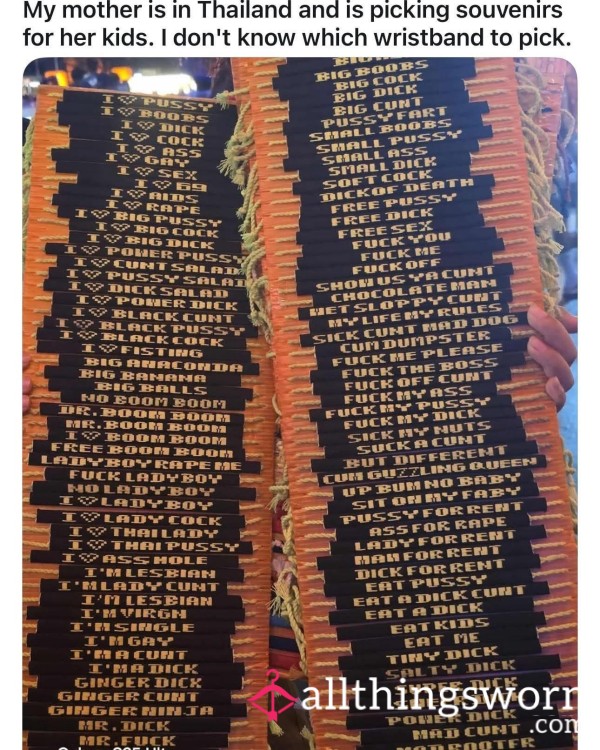 My mother is in Thailand and is picking souvenirs
for her kids. I don't know which wristband to pick.
I ♡ PUSSY
I ♡ BOOBS
I ♡ DICK
I ♡ COCK
I ♡ ASS
I ♡ GAY
I ♡ SEX
I ♡ 69
I ♡ AIDS
I ♡ RAPE
I ♡ BIG PUSSY
I ♡ BIG COCK
I ♡ BIG DICK
I ♡ POWER PUSSY
I ♡ CUNT SALAD
I ♡ PUSSY SALAD
I ♡ DICK SALAD
I ♡ POWER DICK
I ♡ BLACK CUNT
I ♡ BLACK PUSSY
I ♡ BLACK COCK
I ♡ FISTING
BIG ANACONDA
BIG BANANA
BIG BALLS
NO BOOM BOOM
DR. BOOM BOOM
MR. BOOM BOOM
I ♡ BOOM BOOM
FREE BOOM BOOM
LADYBOY RAPE ME
FUCK LADYBOY
NO LADYBOY
I ♡ LADYBOY
I ♡ LADY COCK
I ♡ THAI LADY
I ♡ THAI PUSSY
I ♡ ASS HOLE
I'M LESBIAN
I'M LADY CUNT
I'M LESBIAN
I'M VIRGN
I'M SINGLE
I'M GAY
I'M A CUNT
I'M A DICK
GINGER DICK
GINGER CUNT
GINGER NINJA
MR. DICK
MR. FUCK
BIG BOOBS
BIG COCK
BIG DICK
BIG CUNT
PUSSY FART
SMALL BOOBS
SMALL PUSSY
SMALL ASS
SMALL DICK
SOFT COCK
DICK OF DEATH
FREE PUSSY
FREE DICK
FREE SEX
FUCK YOU
FUCK ME
FUCK OFF
SHOW US YA CUNT
CHOCOLATE MAN
WET SLOPPY CUNT
MY LIFE MY RULES
SICK CUNT MAD DOG
CUM DUMPSTER
FUCK ME PLEASE
FUCK THE BOSS
FUCK OFF CUNT
FUCK MY ASS
FUCK MY PUSSY
FUCK MY DICK
SICK MY NUTS
SUCK A CUNT
BUT DIFFERENT
CUM GUZZLING QUEEN
UP BUM NO BABY
SIT ON MY FABY
PUSSY FOR RENT
ASS FOR RAPE
LADY FOR RENT
MAN FOR RENT
DICK FOR RENT
EAT PUSSY
EAT A DICK CUNT
EAT A DICK
EAT KIDS
EAT ME
TINY DICK
SALTY DICK
DICK
POWER DICK
MAD CUNT
allthingsworn
.com